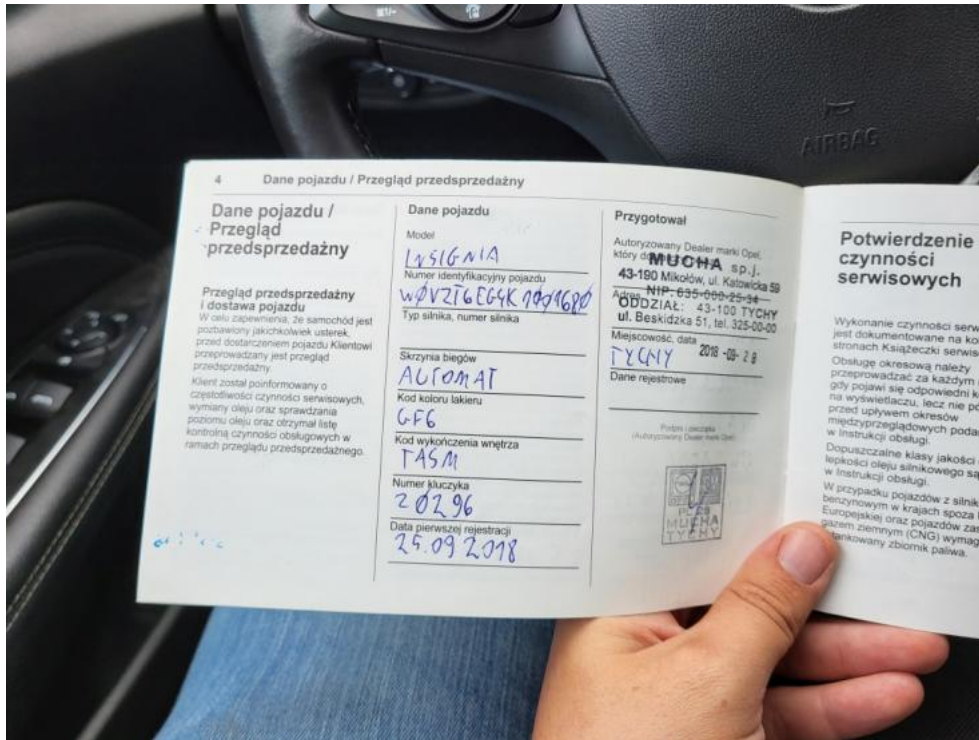 AIRBAG
4 Dane pojazdu / Przegląd przedsprzedażny
Dane pojazdu /
Przegląd
przedsprzedażny
Przegląd przedsprzedażny
i dostawa pojazdu
W celu zapewnienia, że samochód jest
pozbawiony jakichkolwiek usterek,
przed dostarczeniem pojazdu Klientowi
przeprowadzany jest przegląd
przedsprzedażny.
Klient został poinformowany o
częstotliwości czynności serwisowych,
wymiany oleju oraz sprawdzania
poziomu oleju oraz otrzymał listę
kontrolną czynności obsługowych w
ramach przeglądu przedsprzedażnego.
Dane pojazdu
Model
INSIGNIA
Numer identyfikacyjny pojazdu
WØVZT6EG4K1001680
Typ silnika, numer silnika
Skrzynia biegów
AUTOMAT
Kod koloru lakieru
GF6
Kod wykończenia wnętrza
TASM
Numer kluczyka
20296
Data pierwszej rejestracji
25.09.2018
Przygotował
Autoryzowany Dealer marki Opel,
który
MUCHA sp.j.
43-190 Mikołów, ul. Katowicka 59
NIP: 635-000-25-34
Adres
ODDZIAŁ: 43-100 TYCHY
ul. Beskidzka 51, tel. 325-00-00
Miejscowość, data
TYCHY 2018 -09- 28
Dane rejestrowe
Podpis i pieczątka
(Autoryzowany Dealer marki Opel)
MUCHA
TYCHY
Potwierdzenie
czynności
serwisowych
Wykonanie czynności
jest dokumentowane na
stronach Książeczki
Obsługę okresową należy
przeprowadzać za każdym
gdy pojawi się odpowiedni
na wyświetlaczu, lecz nie
przed upływem okresów
międzyprzeglądowych
w Instrukcji obsługi.
Dopuszczalne klasy jakości
lepkości oleju silnikowego są
w Instrukcji obsługi.
W przypadku pojazdów z
benzynowym w krajach spoza
Europejskiej oraz pojazdów
gazem ziemnym (CNG)
zbiornik paliwa.